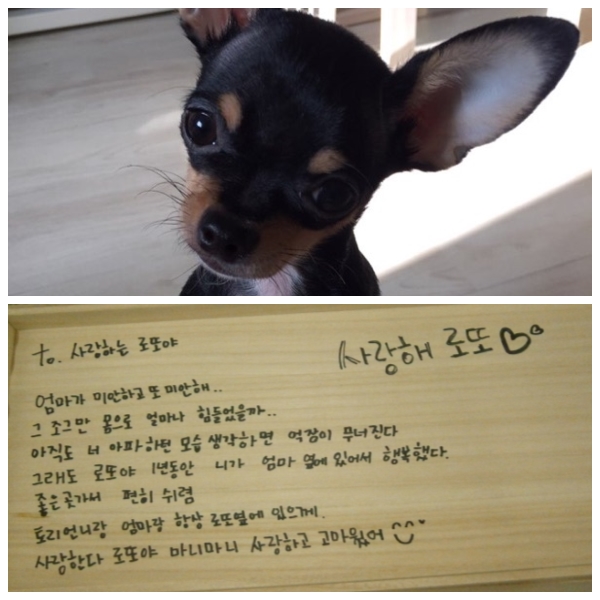 to. 사랑하는 로또야
사랑해 로또 ♡♡
엄마가 미안하고 또 미안해..
그 조그만 몸으로 얼마나 힘들었을까..
아직도 너 아파하던 모습 생각하면 억장이 무너진다
그래도 로또야 1년동안 니가 엄마 옆에 있어서 행복했다.
좋은곳가서 편히 쉬렴
토리언니랑 엄마랑 항상 로또옆에 있으께.
사랑한다 로또야 마니마니 사랑하고 고마웠어 ^^